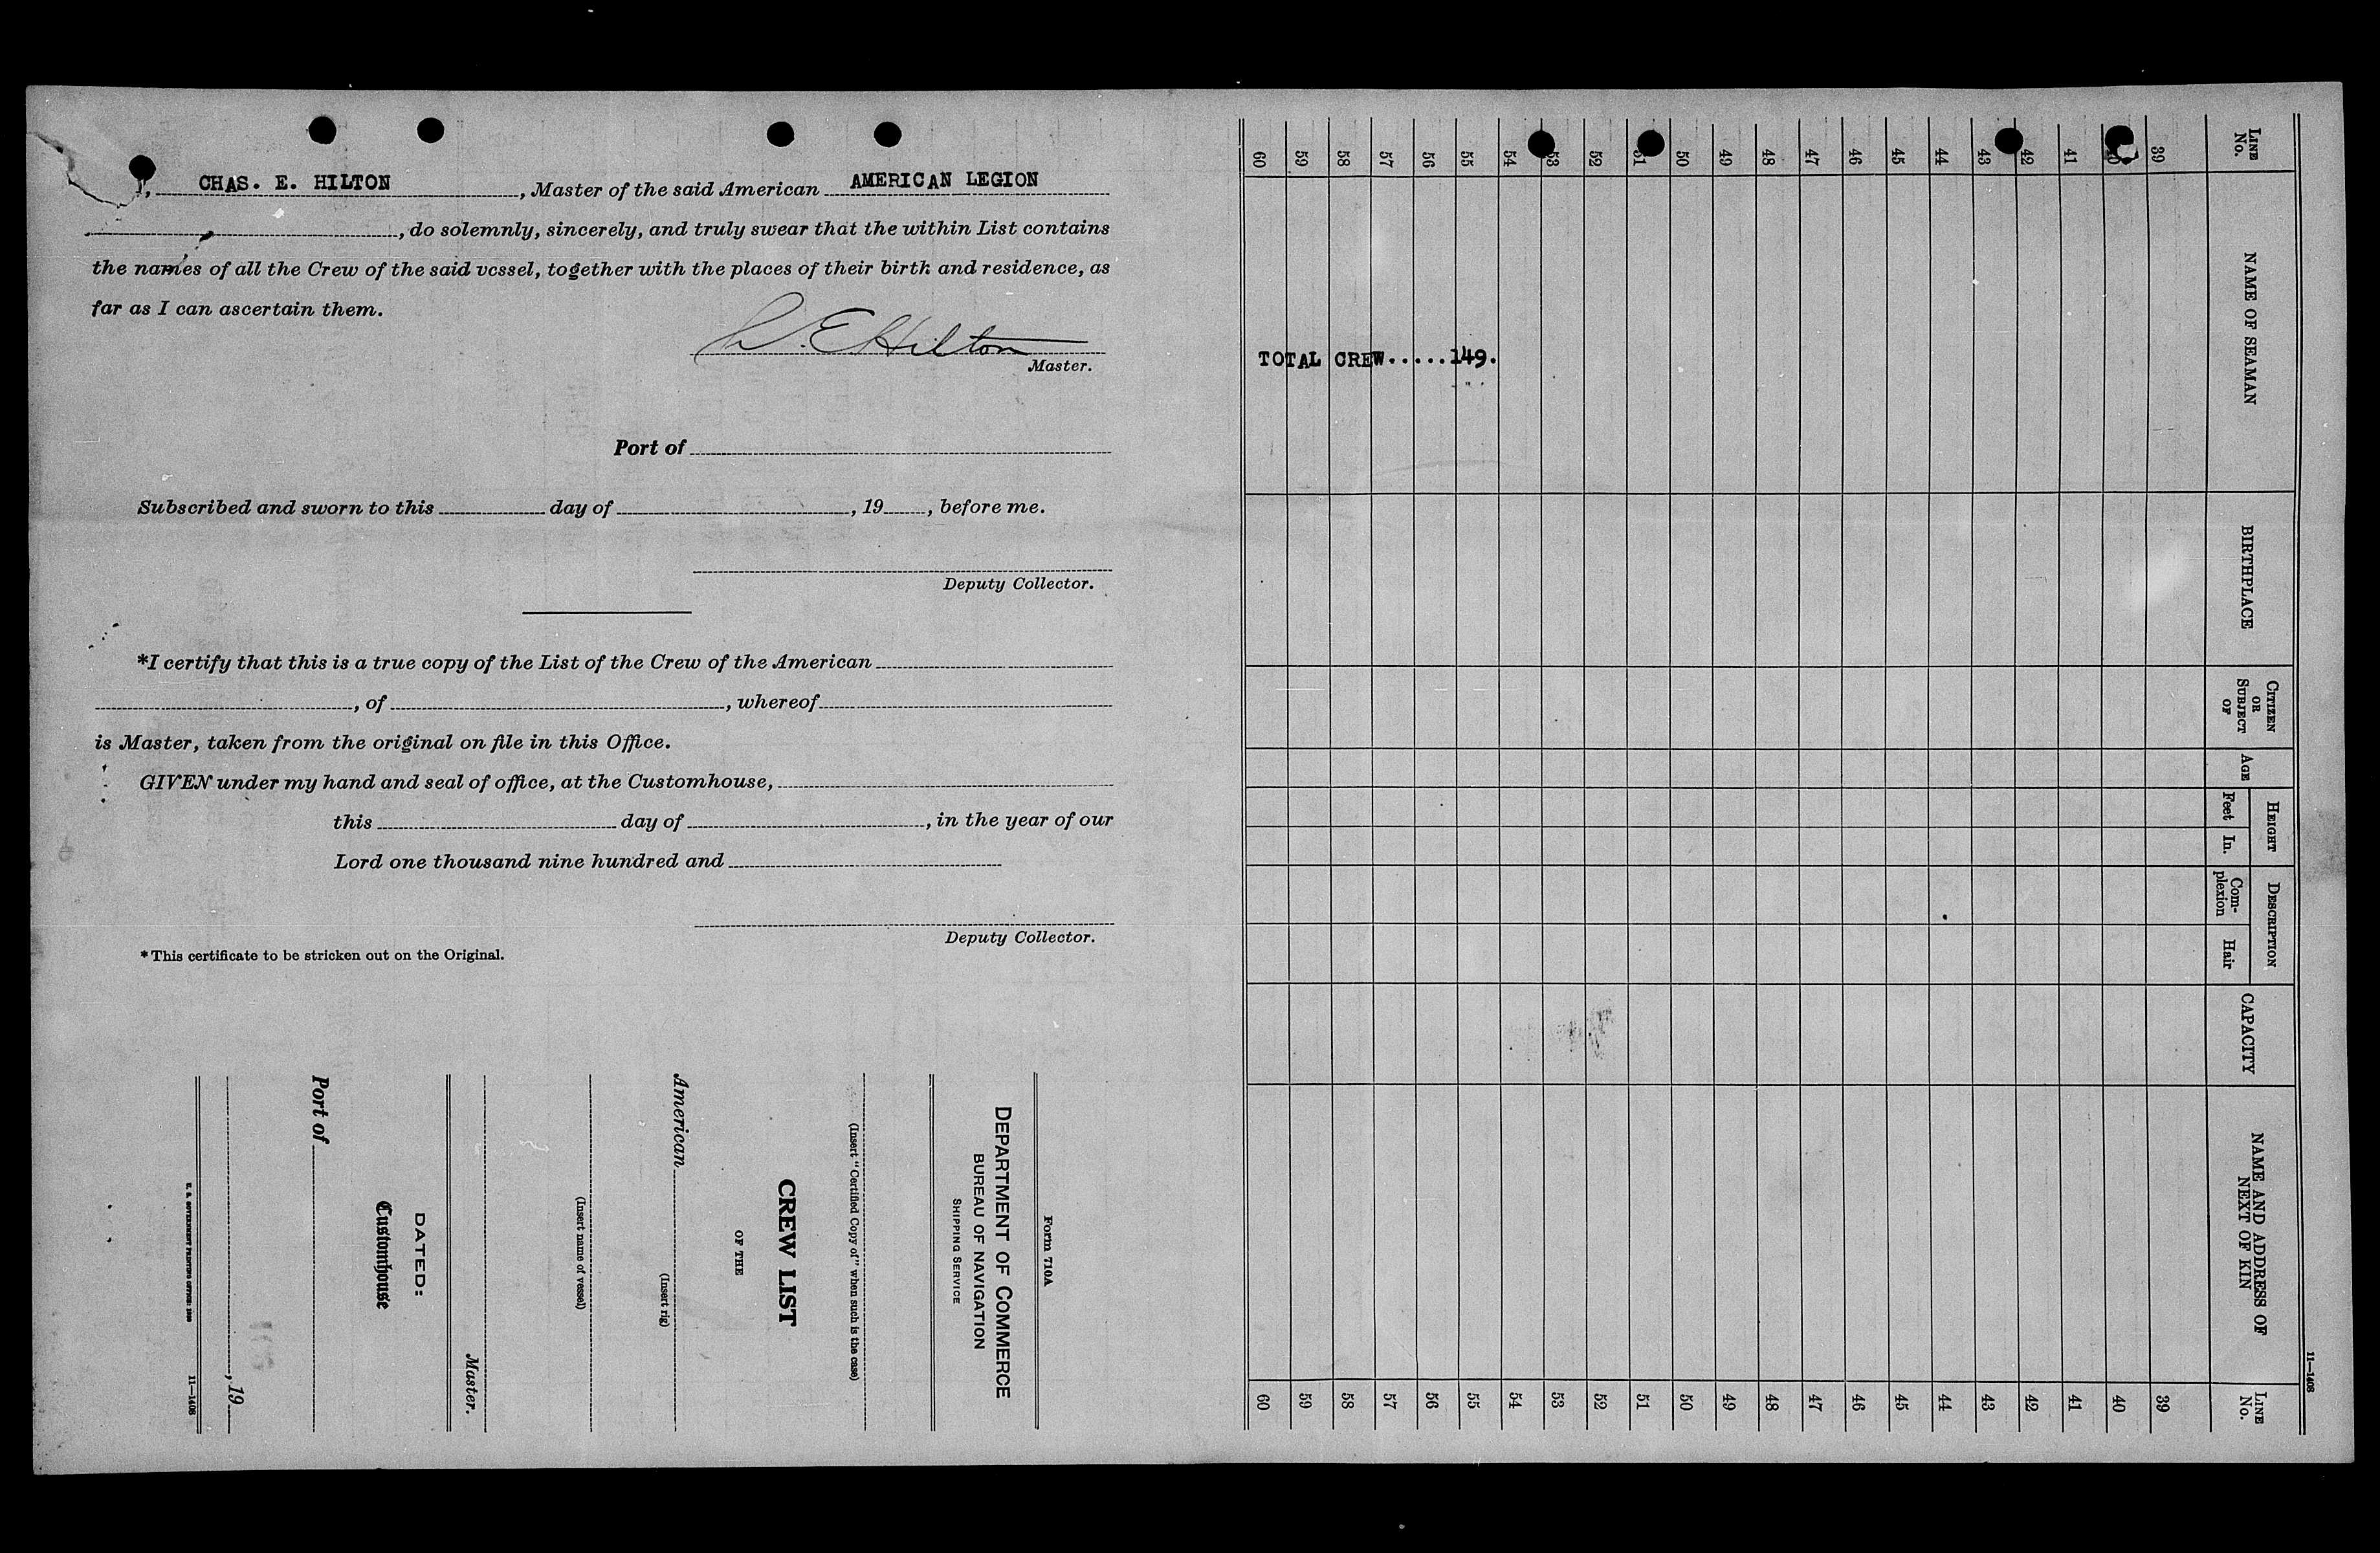 I, CHAS. E. HILTON, Master of the said American AMERICAN LEGION
, do solemnly, sincerely, and truly swear that the within List contains
the names of all the Crew of the said vessel, together with the places of their birth and residence, as
far as I can ascertain them.
C. E. Hilton
Master.
Port of
Subscribed and sworn to this day of , 19 , before me.
Deputy Collector.
*I certify that this is a true copy of the List of the Crew of the American
, of , whereof
is Master, taken from the original on file in this Office.
GIVEN under my hand and seal of office, at the Customhouse,
this day of , in the year of our
Lord one thousand nine hundred and
Deputy Collector.
* This certificate to be stricken out on the Original.
Form 710A
DEPARTMENT OF COMMERCE
BUREAU OF NAVIGATION
SHIPPING SERVICE
(Insert "Certified Copy of" when such is the case)
CREW LIST
OF THE
American
(Insert rig)
(Insert name of vessel)
Master.
DATED:
Customhouse
Port of
, 19
U. S. GOVERNMENT PRINTING OFFICE:
11—1408
11—1408
LINE No.
NAME OF SEAMAN
BIRTHPLACE
CITIZEN OR SUBJECT OF
AGE
HEIGHT
Feet
In.
DESCRIPTION
Com-
plexion
Hair
CAPACITY
NAME AND ADDRESS OF
NEXT OF KIN
LINE No.
39 39
40 40
41 41
42 42
43 43
44 44
45 45
46 46
47 47
48 48
49 49
50 50
51 51
52 52
53 53
54 54
55 55
56 56
57 57
58 58
59 59
60 60
TOTAL CREW.....149.